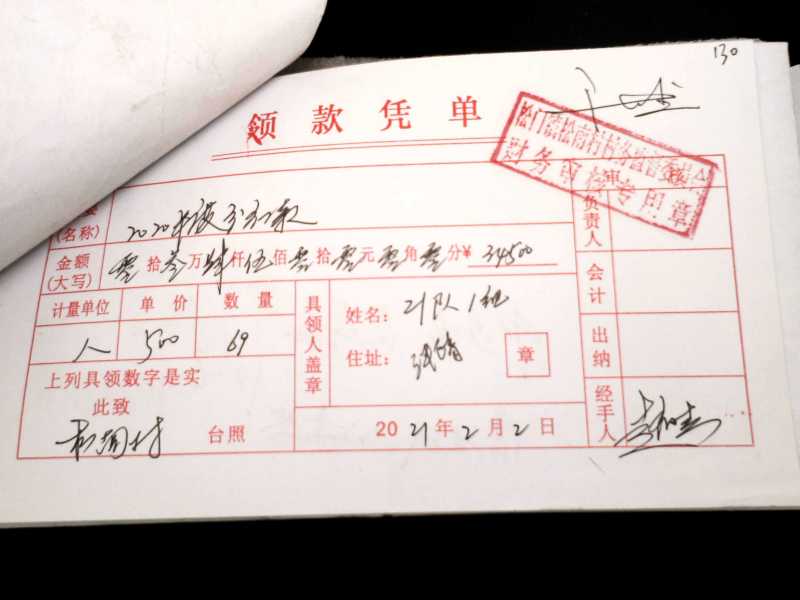 130
领款凭单
松门镇松南村村务监督委员会
财务审核专用章
(名称) 2020年度分红款
金额(大写) 零拾叁万肆仟伍佰零拾零元零角零分¥34500
计量单位 单价 数量
人 500 69
上列具领数字是实
此致
松南村 台照
具领人盖章
姓名: 21队1组
住址:
章
2021年2月2日
审核
负责人
会计
出纳
经手人